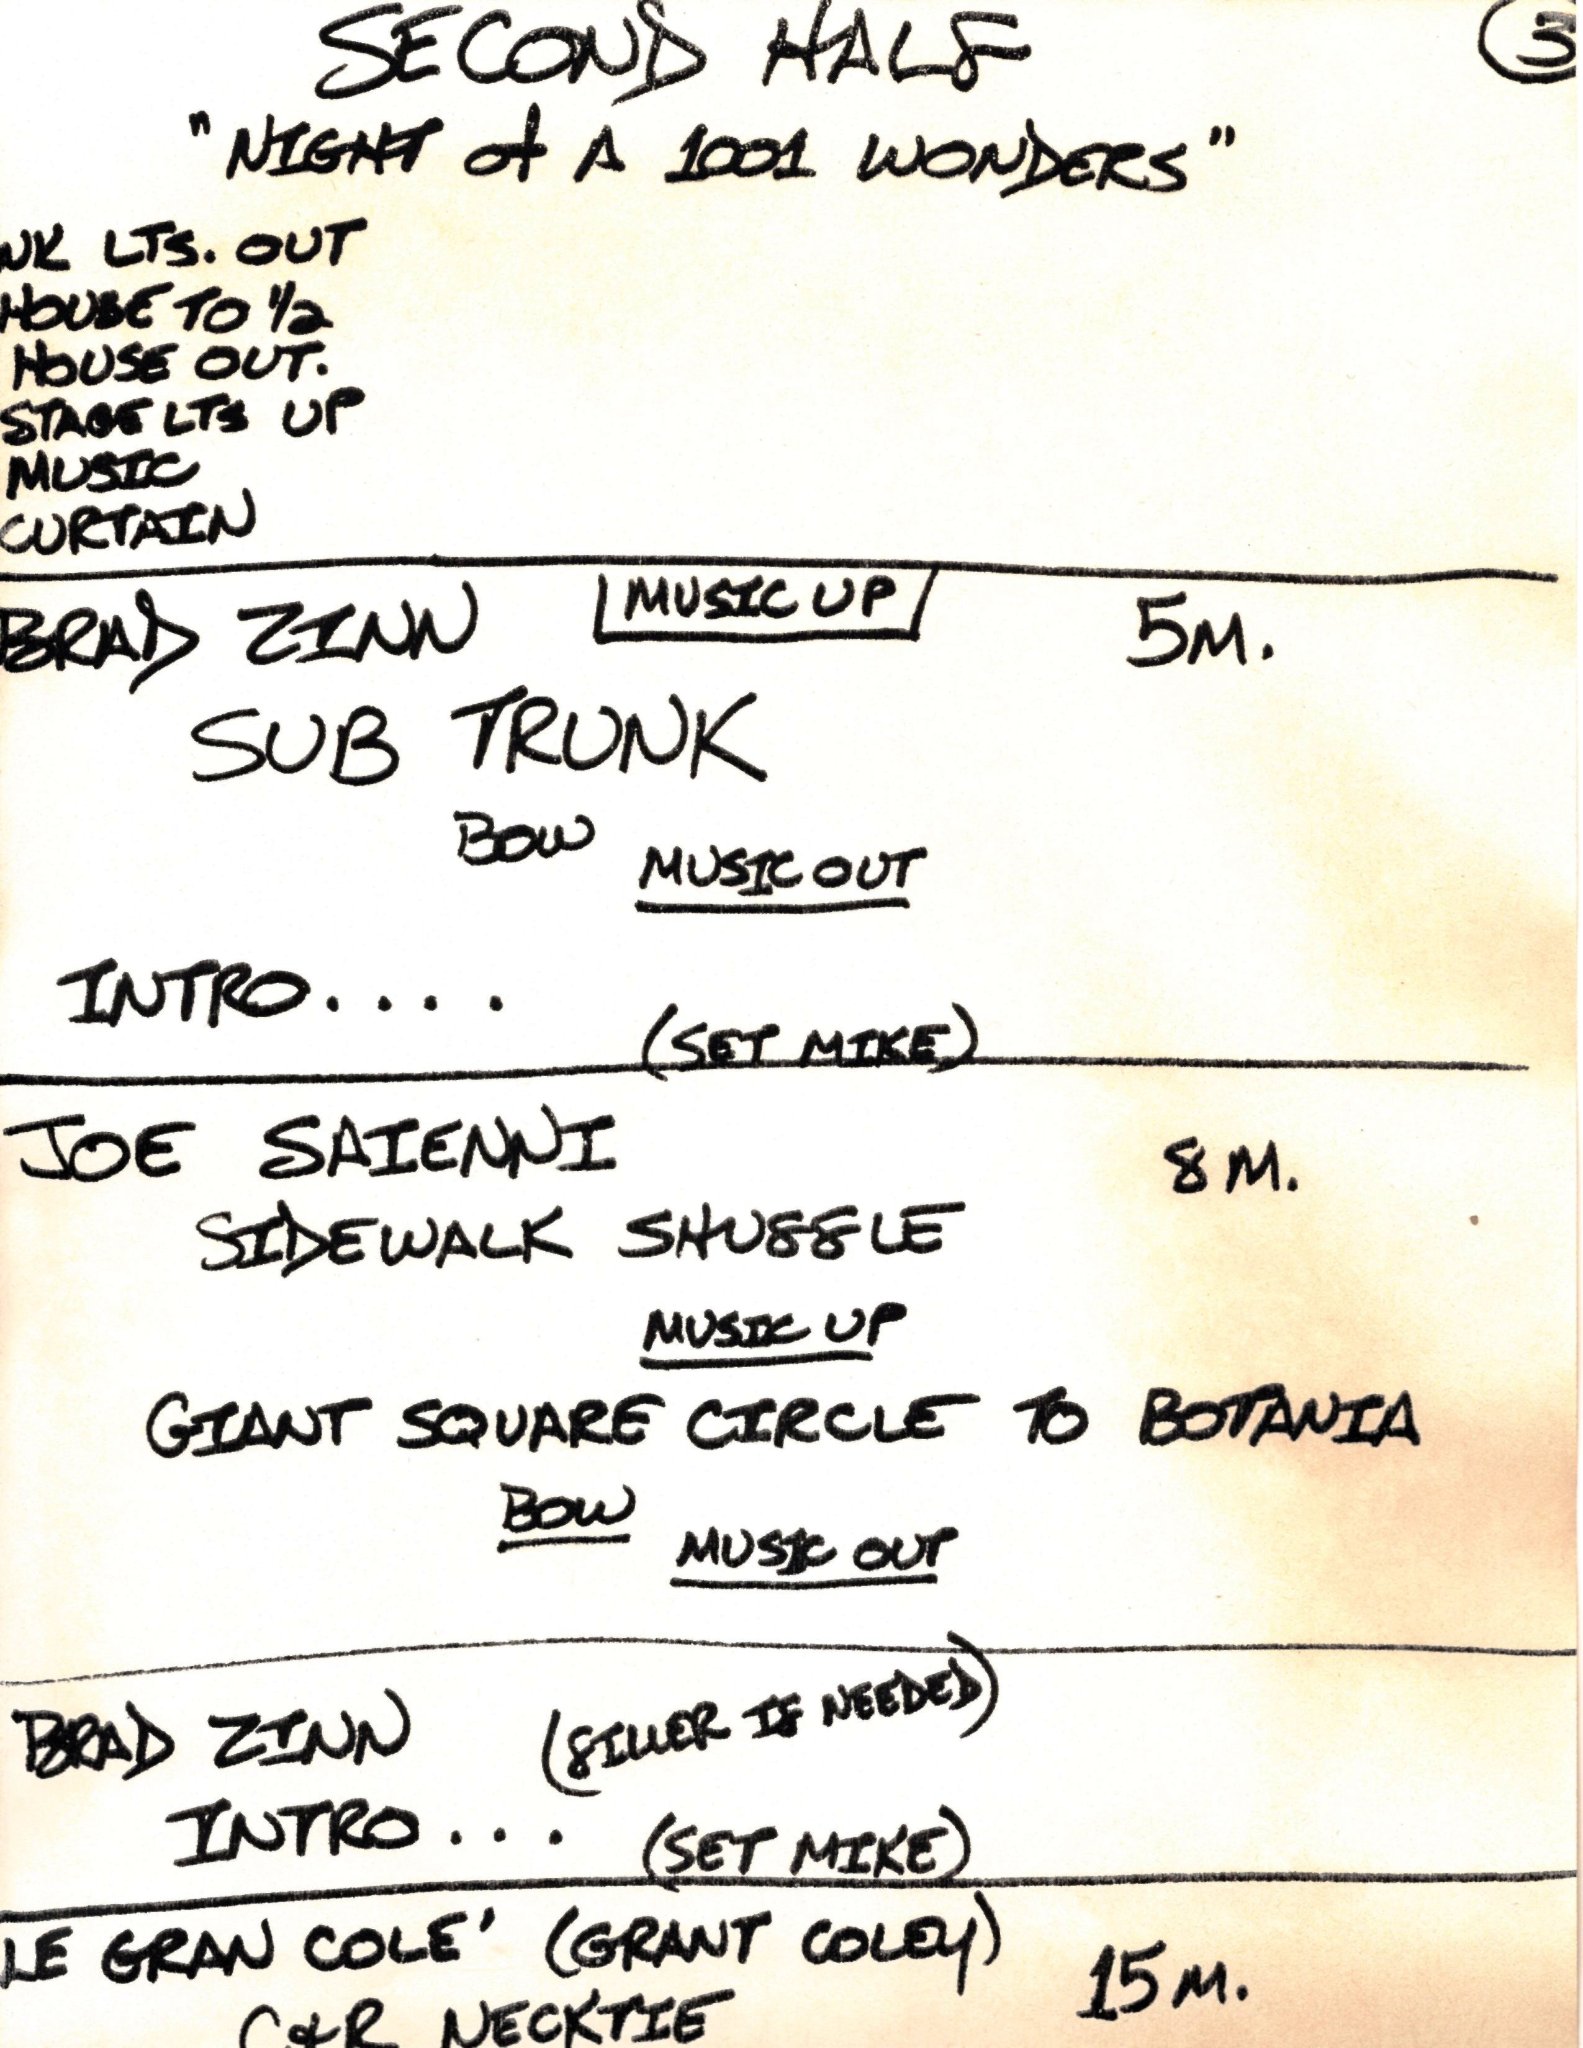 SECOND HALF
3
"NIGHT of A 1001 WONDERS"
NK LTS. OUT
HOUSE TO 1/2
HOUSE OUT.
STAGE LTS UP
MUSIC
CURTAIN
BRAD ZINN MUSIC UP 5M.
SUB TRUNK
BOW
MUSIC OUT
INTRO....
(SET MIKE)
JOE SAIENNI 8 M.
SIDEWALK SHUFFLE
MUSIC UP
GIANT SQUARE CIRCLE TO BOTANIA
BOW
MUSIC OUT
BRAD ZINN (FILLER IF NEEDED)
INTRO... (SET MIKE)
LE GRAN COLE' (GRANT COLEY) 15 M.
C&R NECKTIE